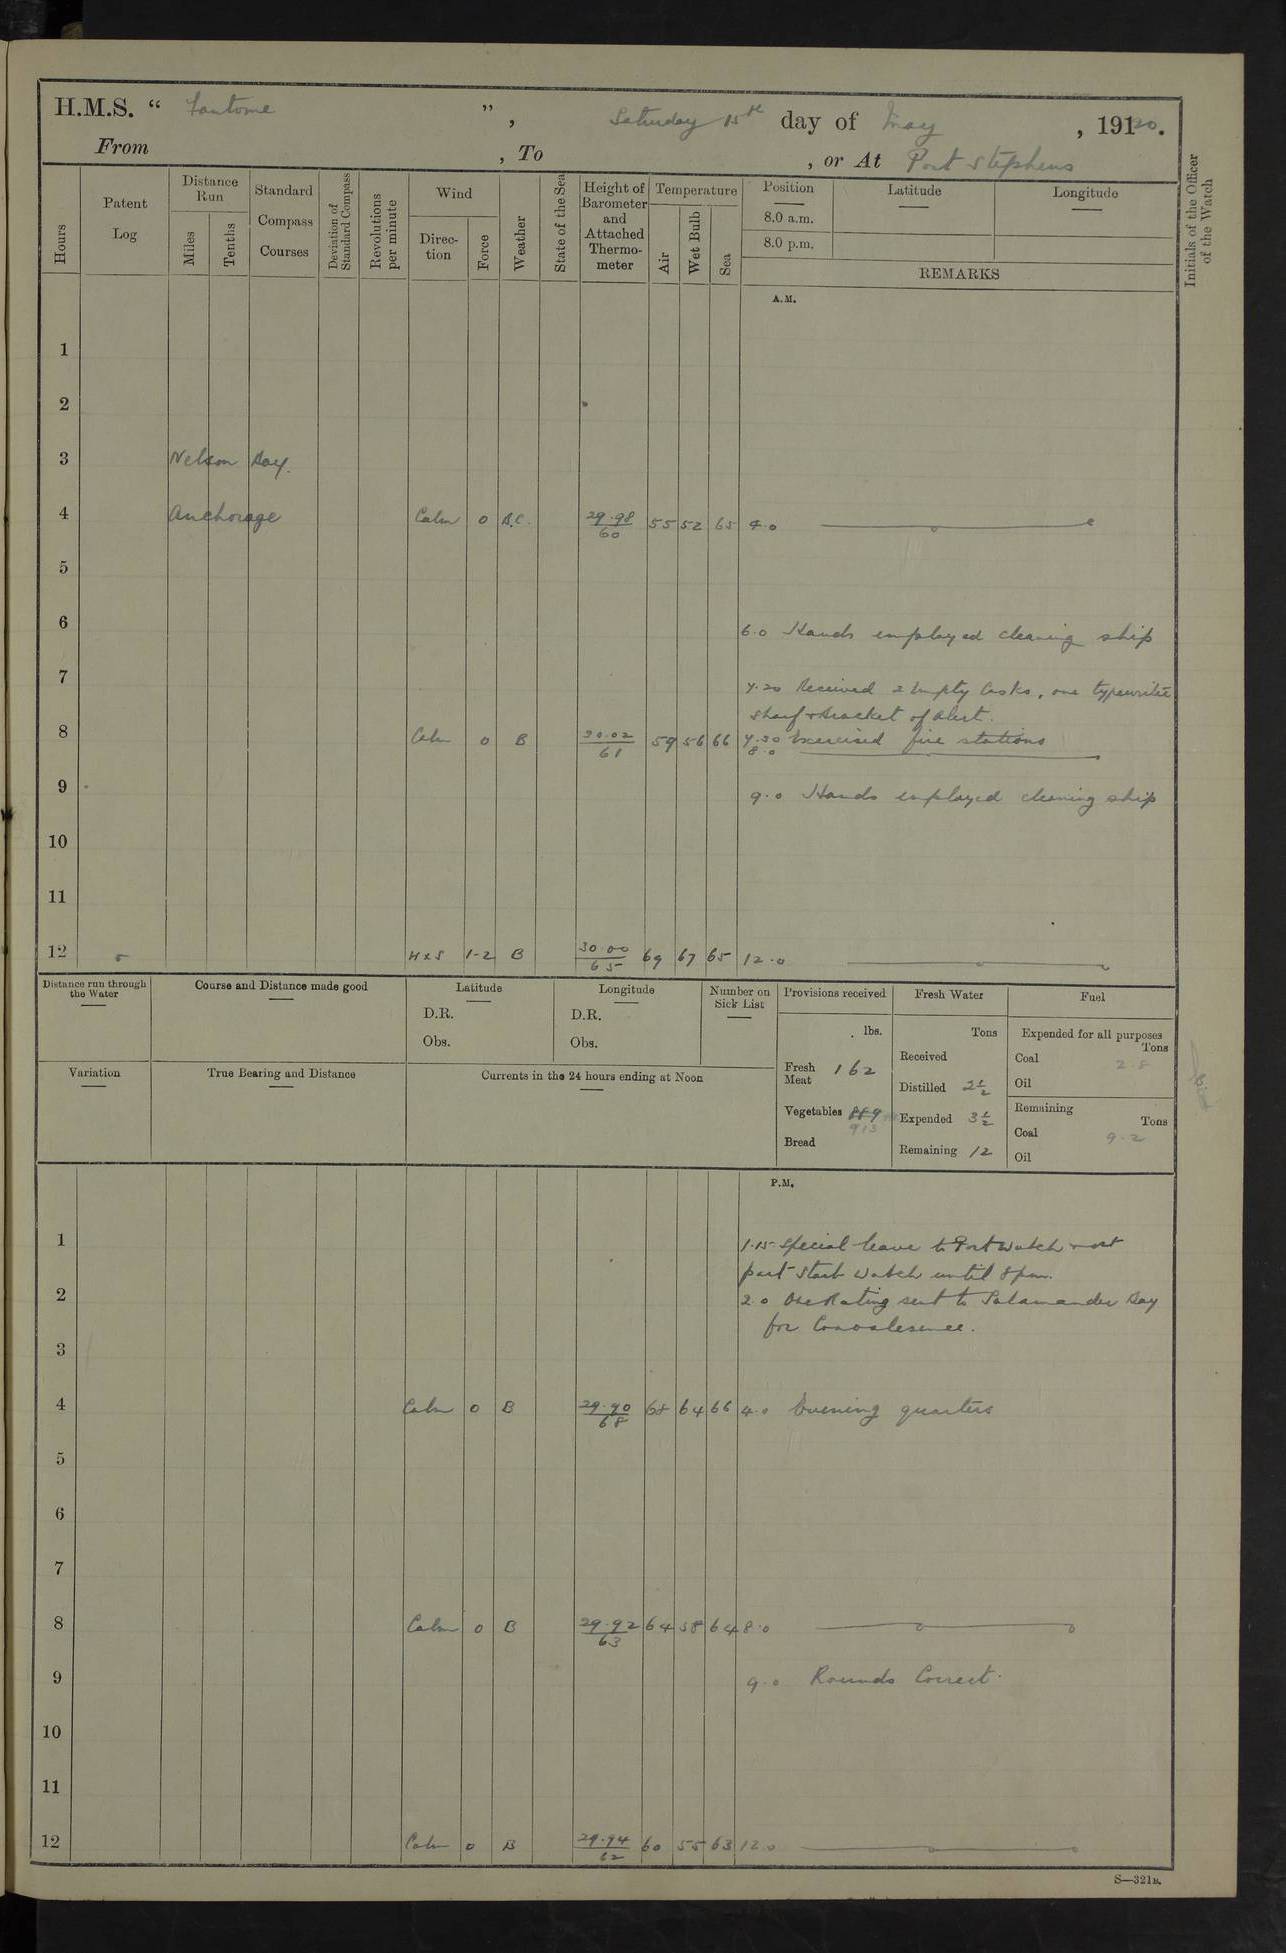 H.M.S. " Fantome ", Saturday 15th day of May, 19120.
From , To , or At Port Stephens
Hours
Patent Log
Distance Run
Miles
Tenths
Standard Compass Courses
Deviation of Standard Compass
Revolutions per minute
Wind
Direction
Force
Weather
State of the Sea
Height of Barometer and Attached Thermometer
Temperature
Air
Wet Bulb
Sea
Position
8.0 a.m.
8.0 p.m.
Latitude
Longitude
REMARKS
Initials of the Officer of the Watch
A.M.
1
2
3 Nelson Bay.
4 Anchorage Calm 0 B.C. 29.98/60 55 52 65 4.0
5
6 6.0 Hands employed cleaning ship
7 7.20 Received 2 Empty Casks, one typewriter
Bracket of Alert.
8 Calm 0 B 30.02/61 59 56 66 7.30 Exercised fire stations
8.0
9 9.0 Hands employed cleaning ship
10
11
12 1-2 B 30.00/65 69 67 65 12.0
Distance run through the Water
Course and Distance made good
Latitude
D.R.
Obs.
Longitude
D.R.
Obs.
Number on Sick List
Provisions received
lbs.
Fresh Meat 162
Vegetables 889
913
Bread
Fresh Water
Tons
Received
Distilled 2 1/2
Expended 3 1/2
Remaining 12
Fuel
Expended for all purposes
Tons
Coal 2.8
Oil
Remaining
Tons
Coal 9.2
Oil
Variation
True Bearing and Distance
Currents in the 24 hours ending at Noon
P.M.
1 1.15 Special leave to Port Watch
part Starb Watch until 8pm.
2 2.0 One Rating sent to Salamander Bay
for Convalesence.
3
4 Calm 0 B 29.90/68 68 64 66 4.0 Evening quarters
5
6
7
8 Calm 0 B 29.92/63 64 58 64 8.0
9 9.0 Rounds Correct.
10
11
12 Calm 0 B 29.94/62 60 55 63 12.0
S—321B.